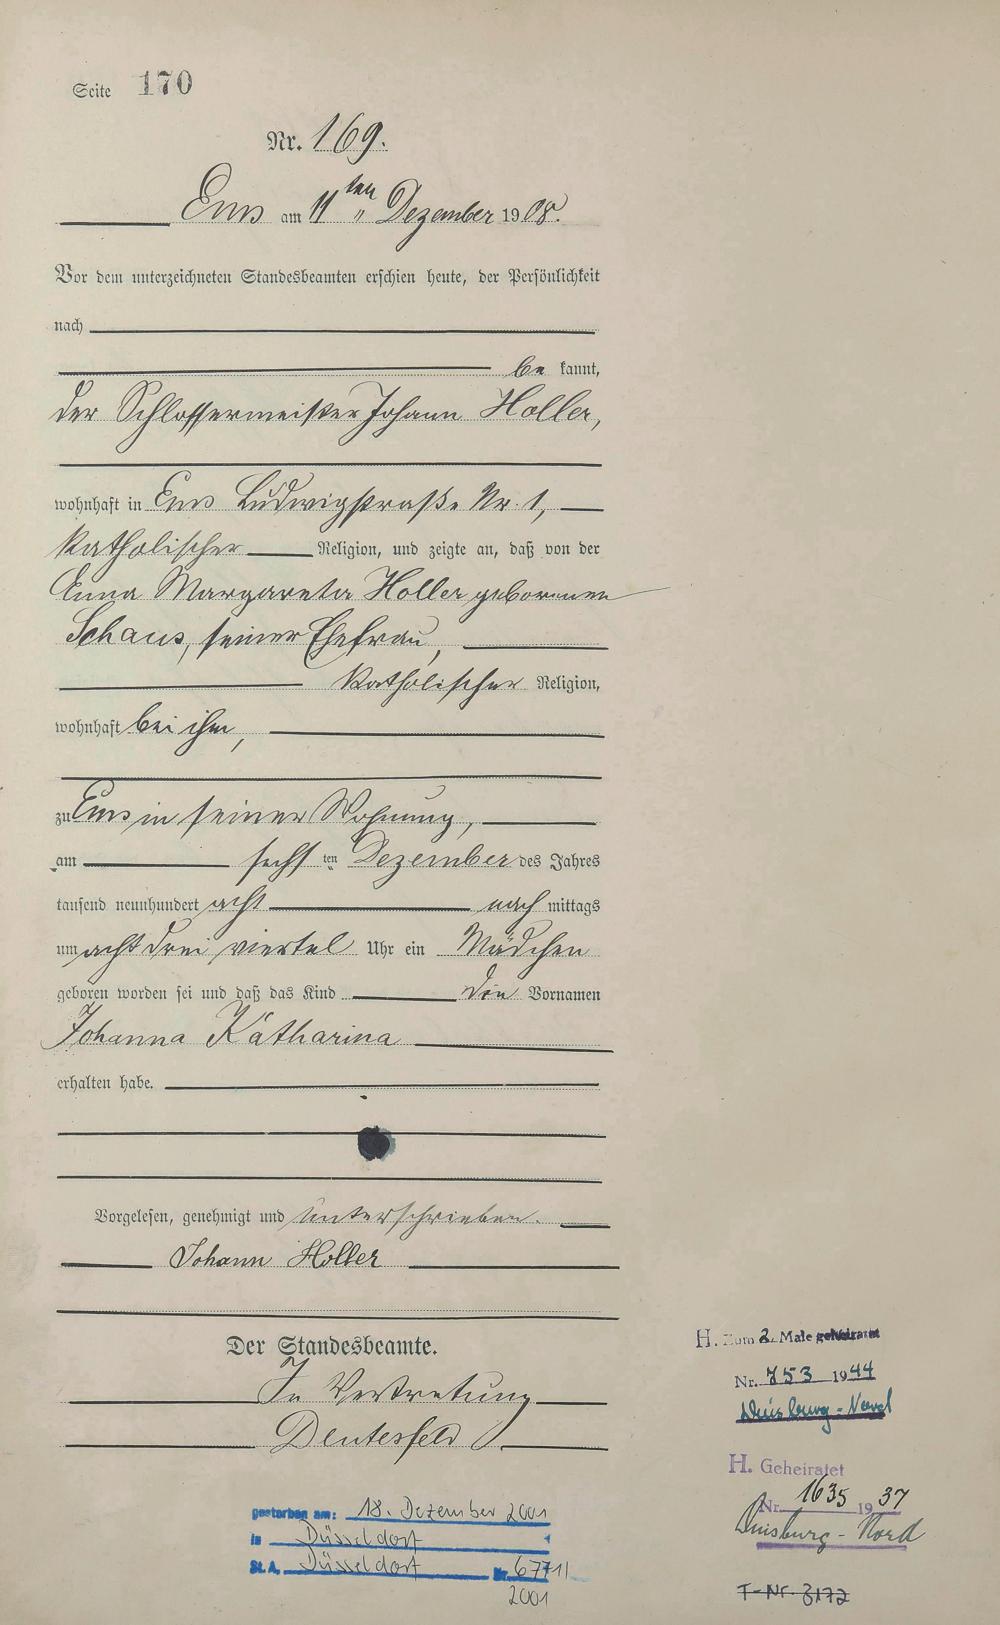 Seite 170
Nr. 169.
Ems am 11ten Dezember 1908.
Vor dem unterzeichneten Standesbeamten erschien heute, der Persönlichkeit
nach
be kannt,
der Schlossermeister Johann Holler,
wohnhaft in Ems Ludwigstraße Nr. 1,
katholischer Religion, und zeigte an, daß von der
Anna Margareta Holler geborenen
Schaus, seiner Ehefrau,
katholischer Religion,
wohnhaft bei ihm,
zu Ems in seiner Wohnung,
am sechs ten Dezember des Jahres
tausend neunhundert acht nach mittags
um acht drei viertel Uhr ein Mädchen
geboren worden sei und daß das Kind die Vornamen
Johanna Katharina
erhalten habe.
Vorgelesen, genehmigt und unterschrieben.
Johann Holler
Der Standesbeamte.
In Vertretung
Deutesfeld
H. Zum 2. Male geheiratet
Nr. 753 1944
Duisburg-Nord
H. Geheiratet
Nr. 1635 1937
Duisburg-Nord
T-Nr. 3172
gestorben am: 18. Dezember 2001
in Düsseldorf
St.A. Düsseldorf Nr.
2001